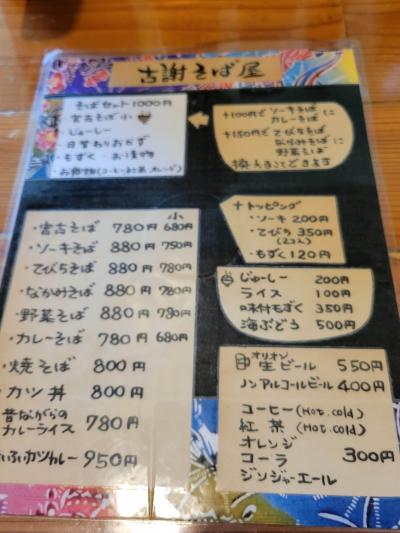 古謝そば屋
そばセット1000円
宮古そば小
・じゅーしー
・日替わりおかず
・もずく・お漬物
・お飲物(コーヒー、紅茶、オレンジ)
+100円でソーキそば
カレーそばに
+150円でてびちそば
なかみそばに
野菜そば
換えることできます
小
・宮古そば 780円 680円
・ソーキそば 880円 750円
・てびちそば 880円 780円
・なかみそば 880円 780円
・野菜そば 880円 780円
・カレーそば 780円 680円
・焼そば 800円
・カツ丼 800円
昔ながらの
カレーライス 780円
カツカレー 950円
+トッピング
・ソーキ 200円
・てびち 350円
(2コ入)
・もずく 120円
じゅーしー 200円
ライス 100円
味付もずく 350円
海ぶどう 500円
オリオン
生ビール 550円
ノンアルコールビール 400円
コーヒー(Hot.cold)
紅茶(Hot.cold)
オレンジ
コーラ 300円
ジンジャーエール